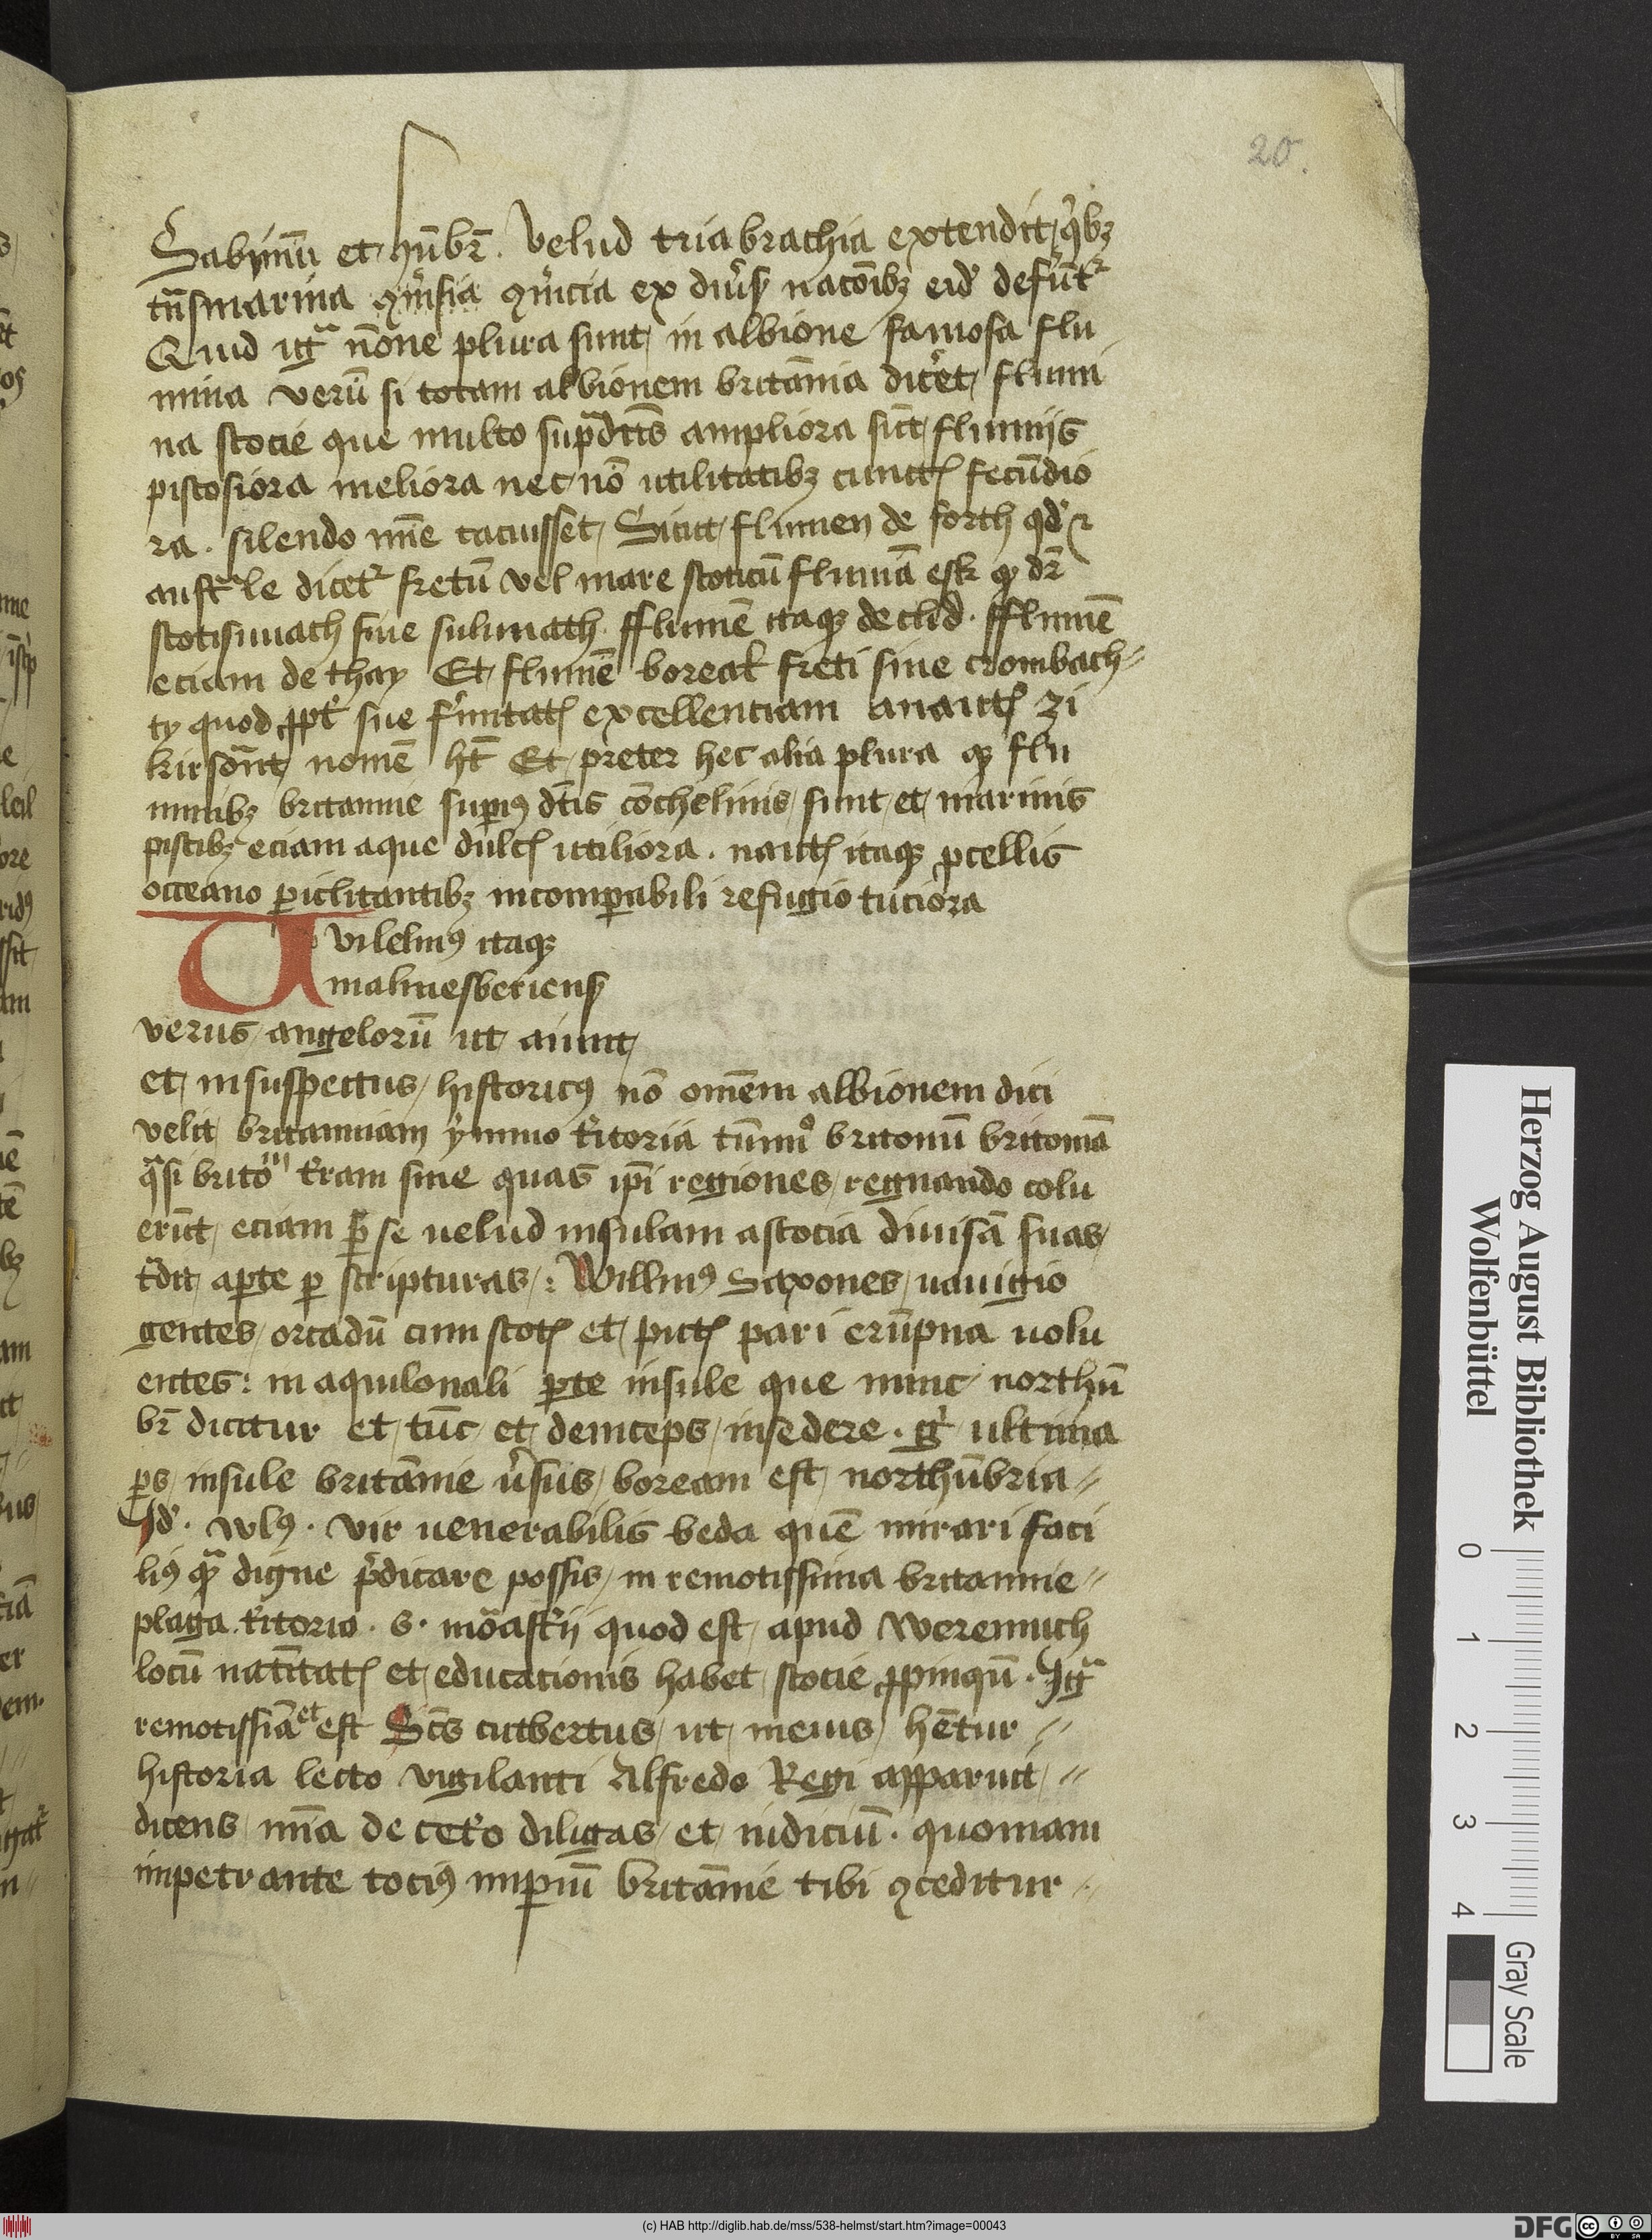 20.
Sabrinū et hūbr̄. velud tria brachia extendit, qͥbꝫ
tn̄smarina ex diuͬsꝭ nacōibꝫ eidͤ defūt᷑
Quid igͣ nōne plura sunt in albione famosa flu
mina verū si totam albionem britānia dicͤet flumi
na scocie que multo sup̄dictis ampliora sūt fluuiis
piscosiora meliora nec nō utilitatibꝫ cunctꝭ fecūdio
ra. silendo mīe tacuisset, Sicut flumen de forth qdͤ
austͣle dicet᷑ fretū vel mare scoticū flumā esk qꝫ dr̄
scotiswach siue sulwath. fflumē itaqꝫ de clid. fflumē
eciam de thay Et flumē boreaƚ freti siue crombach
ty quod ꝓpt̄ sue excellenciam a nautꝭ zi
kirsōnt nomē ht̄ Et preter hec alia plura qꝫ flu
minibꝫ britannie supius dc̄is cōchelinis sunt et marinis
piscibꝫ eciam aque dulcꝭ utiliora. nautꝭ itaqꝫ ꝓcellis
occeano ꝑiclitantibꝫ incomꝑabili refugio tuciora
Vvilelmꝰ itaqꝫ
malmesberiensꝭ
verus angelorū ut aiunt
et insuspectus historicꝰ nō omēm albionem dici
velit britanniam ymmo t̄itoria britonū britoniā
qͣsi britoͫ t̄ram siue quas ip̄i regiones regnando colu
erūt, eciam ꝑ se velud insulam a scocia diuisā suas
t̄dit aꝑte ꝑ scripturas: Willmꝰ Saxones nauigio
gentes orcadū cum scotꝭ et pictꝭ pari erūpna uolu
entes: in aquilonali ꝑte insule que nunc northū
br̄ dicitur et tūc et deinceps insedere. gͥ ultima
ꝑs insule britānie v̄sus boream est northūbria
Idͤ. wlꝰ. vir uenerabilis beda quē mirari faci
liꝰ qͣ digne p̄dicare possis in remotissima britannie
plaga t̄itorio. s. mōast̄ii quod est apud weremuth
locū natītatꝭ et educationis habet scocie ꝓpinqū. Igͣ
remotissīa et est Scūs cutbertus ut meius hētur
historia lecto vigilanti Alfredo Regi apparuit
dicens mīa de cet̄o diligas et iudiciū. quoniam
impetrante tociꝰ imꝑiū britānie tibi ꝯceditur
Herzog August Bibliothek
Wolfenbüttel
0 1 2 3 4
Gray Scale
(c) HAB http://diglib.hab.de/mss/538-helmst/start.htm?image=00043
DFG
cc BY SA